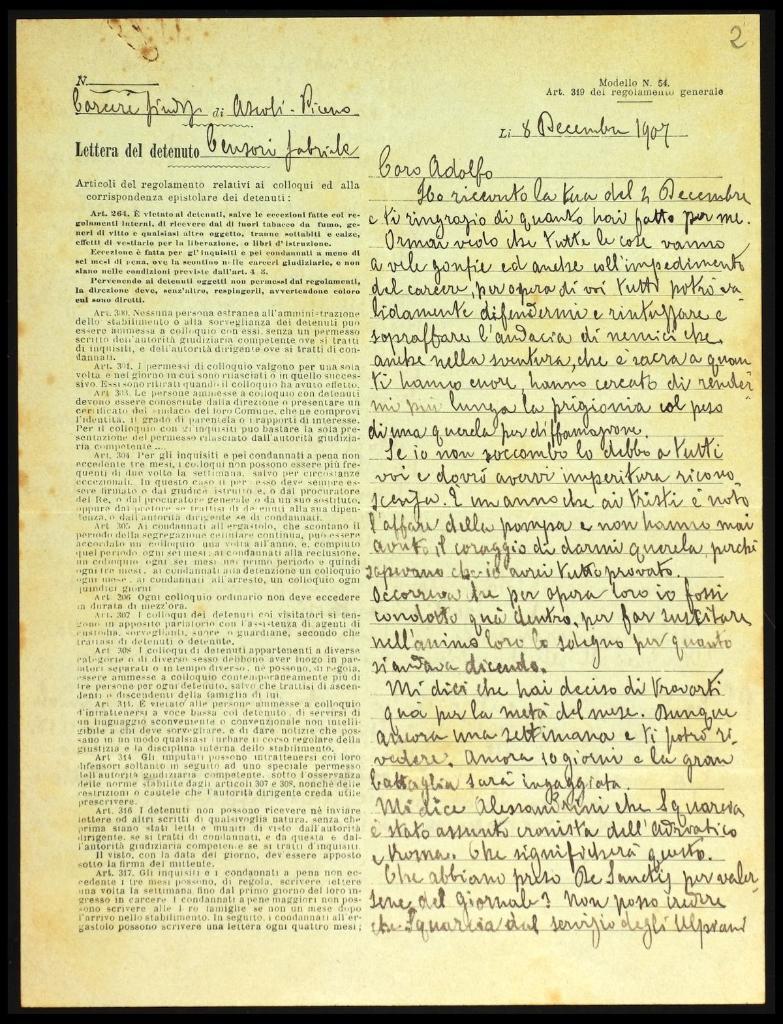 2
N.
Modello N. 54.
Art. 319 del regolamento generale
Carcere Giudiz. di Ascoli-Piceno
Lì 8 Decembre 1907
Lettera del detenuto Censori Gabriele
Articoli del regolamento relativi ai colloqui ed alla
corrispondenza epistolare dei detenuti:
Art. 264. È vietato ai detenuti, salve le eccezioni fatte coi re-
golamenti interni, di ricevere dal di fuori tabacco da fumo, gene-
ri di vitto e qualsiasi altro oggetto, tranne sottabiti e calze,
effetti di vestiario per la liberazione, o libri d'istruzione.
Eccezione è fatta per gl'inquisiti e pei condannati a meno di
sei mesi di pena, ove la scontino nelle carceri giudiziarie, e non
siano nelle condizioni previste dall'art. 4
Pervenendo ai detenuti oggetti non permessi dai regolamenti,
la direzione deve, senz'altro, respingerli, avvertendone coloro
cui sono diretti.
Art. 300. Nessuna persona estranea all'amministrazione
dello stabilimento o alla sorveglianza dei detenuti può
essere ammessa a colloquio con essi, senza un permesso
scritto dell'autorità giudiziaria competente ove si tratti
di inquisiti, e dell'autorità dirigente ove si tratti di con-
dannati.
Art. 301. I permessi di colloquio valgono per una sola
volta e nel giorno in cui sono rilasciati o in quello succes-
sivo. Essi sono ritirati quando il colloquio ha avuto effetto.
Art. 303. Le persone ammesse a colloquio con detenuti
devono essere conosciute dalla direzione o presentare un
certificato del sindaco del loro Comune, che ne comprovi
l'identità, il grado di parentela o i rapporti di interesse.
Per il colloquio con gl'inquisiti può bastare la sola pre-
sentazione del permesso rilasciato dall'autorità giudizia-
ria competente.
Art. 304 Per gli inquisiti e pei condannati a pena non
eccedente tre mesi, i colloqui non possono essere più fre-
quenti di due volte la settimana, salvo per circostanze
eccezionali. In questo caso il permesso deve sempre es-
sere firmato o dal giudice istruttore, o dal procuratore
del Re, o dal procuratore generale o da un suo sostituto,
oppure dal pretore se trattisi di detenuti alla sua dipen-
denza, o dall'autorità dirigente se di condannati.
Art. 305 Ai condannati all'ergastolo, che scontano il
periodo della segregazione cellulare continua, può essere
accordato un colloquio una volta all'anno, e, compiuto
quel periodo, ogni sei mesi; ai condannati alla reclusione,
un colloquio ogni sei mesi nel primo periodo e quindi
ogni tre mesi, ai condannati alla detenzione un colloquio
ogni mese, ai condannati all'arresto, un colloquio ogni
quindici giorni
Art. 206 Ogni colloquio ordinario non deve eccedere
in durata di mezz'ora.
Art. 307 I colloqui dei detenuti coi visitatori si ten-
gono in apposito parlatorio con l'assistenza di agenti di
custodia, sorveglianti, suore o guardiane, secondo che
trattasi di detenuti o detenute.
Art. 308 I colloqui di detenuti appartenenti a diverse
categorie o di diverso sesso debbono aver luogo in par-
latori separati o in tempo diverso, nè possono, di regola,
essere ammesse a colloquio contemporaneamente più di
tre persone per ogni detenuto, salvo che trattisi di ascen-
denti o discendenti della famiglia di lui
Art. 311. È vietato alle persone ammesse a colloquio
d'intrattenersi a voce bassa col detenuto, di servirsi di
un linguaggio sconveniente o convenzionale non intelli-
gibile a chi deve sorvegliare, e di dare notizie che pos-
sano in un modo qualsiasi turbare il corso regolare della
giustizia e la disciplina interna dello stabilimento.
Art. 314 Gli imputati possono intrattenersi coi loro
difensori soltanto in seguito ad uno speciale permesso
dell'autorità giudiziaria competente, sotto l'osservanza
delle norme stabilite dagli articoli 307 e 308, nonchè delle
restrizioni o cautele che l'autorità dirigente creda utile
prescrivere.
Art. 316 I detenuti non possono ricevere nè inviare
lettere od altri scritti di qualsivoglia natura, senza che
prima siano stati letti e muniti di visto dall'autorità
dirigente, se si tratti di condannati, e da questa e dal-
l'autorità giudiziaria competente se si tratti d'inquisiti.
Il visto, con la data del giorno, dev'essere apposto
sotto la firma del mittente.
Art. 317. Gli inquisiti e i condannati a pena non ec-
cedente i tre mesi possono, di regola, scrivere lettere
una volta la settimana fino dal primo giorno del loro in-
gresso in carcere I condannati a pene maggiori non pos-
sono scrivere alle loro famiglie se non un mese dopo
l'arrivo nello stabilimento. In seguito, i condannati all'er-
gastolo possono scrivere una lettera ogni quattro mesi;
Caro Adolfo
Ho ricevuto la tua del 4 Decembre
e ti ringrazio di quanto hai fatto per me.
Ormai vedo che tutte le cose vanno
a vele gonfie ed anche coll'impedimento
del carcere, per opera di voi tutti potrò va-
lidamente difendermi e rintuzzare e
sopraffare l'audacia di nemici che,
anche nella sventura, che è sacra a quan-
ti hanno cuore, hanno cercato di render-
mi più lunga la prigionia col peso
di una querela per diffamazione.
Se io non soccombo lo debbo a tutti
voi e dovrò avervi imperitura ricono-
scenza. È un anno che ai tristi è noto
l'affare della pompa e non hanno mai
avuto il coraggio di darmi querela perchè
sapevano che io avrei tutto provato.
Occorreva che per opera loro io fossi
condotto quà dentro, per far suscitare
nell'animo loro lo sdegno per quanto
si andava dicendo.
Mi dici che hai deciso di trovarti
quà per la metà del mese. Dunque
ancora una settimana e ti potrò ri-
vedere. Ancora 10 giorni e la gran
battaglia sarà ingaggiata.
Mi dice Alessandrini che Squarcia
è stato assunto cronista dell'Adriatico
e Roma. Che significherà questo.
Che abbiano preso De Sanctis per valer-
sene del giornale? Non posso credere
che Squarcia dal servizio degli Ulpiani